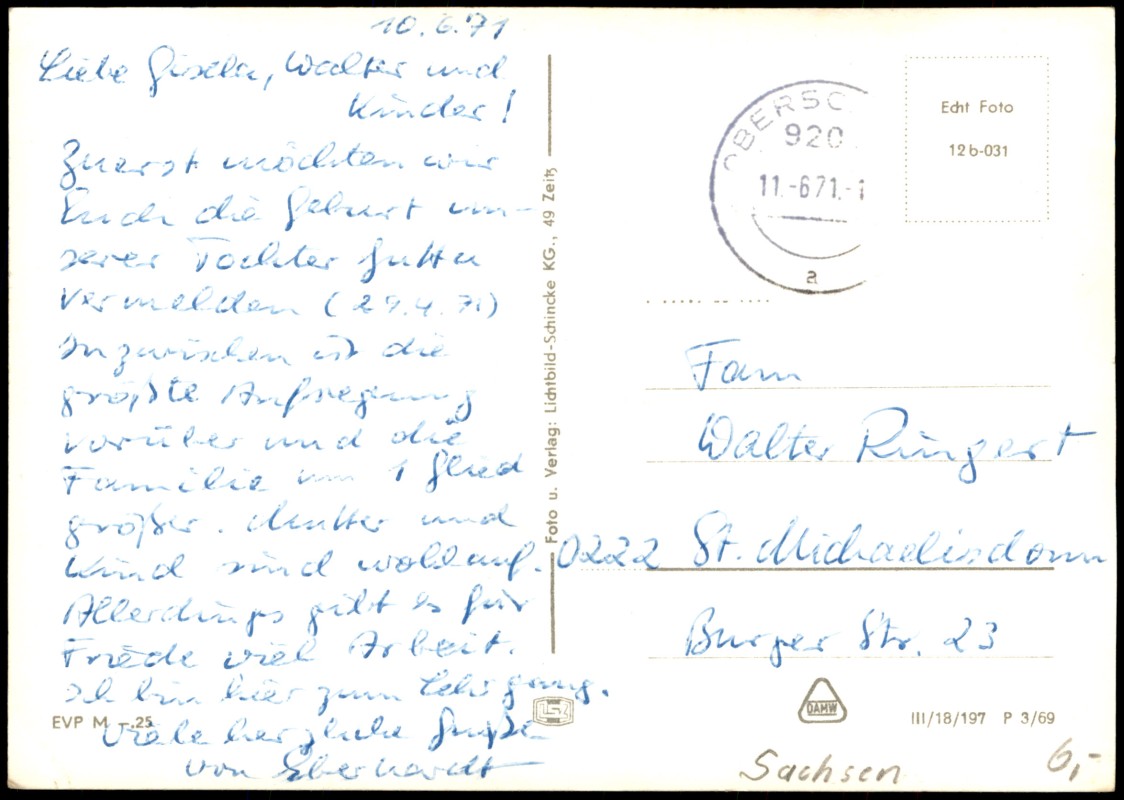 10.6.71
Liebe Gisela, Walter und
Kinder!
Zuerst möchten wir
Euch die Geburt un-
serer Tochter Jutta
vermelden (29.4.71)
Inzwischen ist die
größte Aufregung
vorüber und die
Familie um 1 Glied
größer. Mutter und
Kind sind wohlauf.
Allerdings gibt es für
Friede viel Arbeit.
Ich bin hier zum Lehrgang.
Viele herzliche Grüße
von Eberhardt
EVP M -.25
Foto u. Verlag: Lichtbild-Schincke KG., 49 Zeitz
OBERSC
920
11.-6.71.-1
a
Echt Foto
12b-031
Fam
Walter Ringert
0222 St. Michaelisdonn
Burger Str. 23
DAMW
III/18/197 P 3/69
Sachsen
6,-